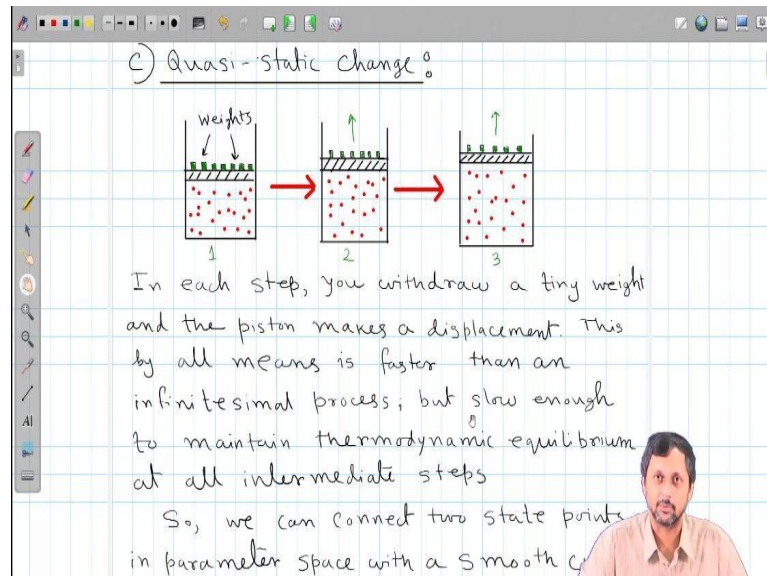 C) Quasi-static change:
weights
1
2
3
In each step, you withdraw a tiny weight
and the piston makes a displacement. This
by all means is faster than an
infinitesimal process, but slow enough
to maintain thermodynamic equilibrium
at all intermediate steps
So, we can connect two state points
in parameter space with a smooth